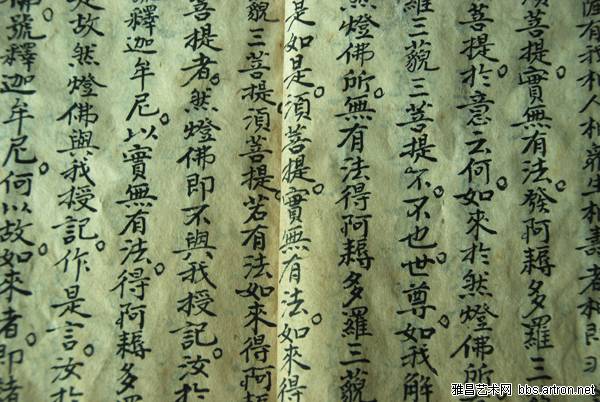 有我相人相衆生相壽者相即
須菩提實無有法。發阿耨多羅三
菩提。於意云何如來於然燈佛所
羅三藐三菩提不。不也。世尊。如我解
然燈佛所。無有法得阿耨多羅三藐
是如是。須菩提。實無有法。如來得
藐三菩提。須菩提。若有法如來得阿耨
菩提者。然燈佛即不與我授記。汝於
釋迦牟尼。以實無有法。得阿耨多羅
是故然燈佛與我授記。作是言。汝於
佛號釋迦牟尼。何以故。如來者。即諸
雅昌艺术网 bbs.artron.net